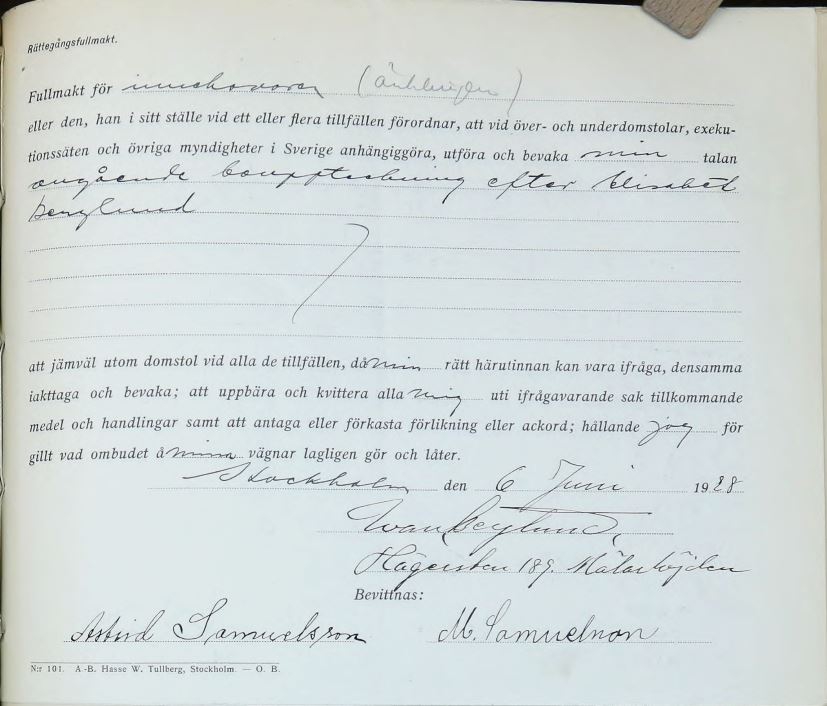 Rättegångsfullmakt.
Fullmakt för innehavaren
eller den, han i sitt ställe vid ett eller flera tillfällen förordnar, att vid över- och underdomstolar, exeku-
tionssäten och övriga myndigheter i Sverige anhängiggöra, utföra och bevaka min talan
angående bouppteckning efter Elisabet
Berglund
att jämväl utom domstol vid alla de tillfällen, då min rätt härutinnan kan vara ifråga, densamma
iakttaga och bevaka; att uppbära och kvittera alla mig uti ifrågavarande sak tillkommande
medel och handlingar samt att antaga eller förkasta förlikning eller ackord; hållande jag för
gillt vad ombudet å mina vägnar lagligen gör och låter.
Stockholm den 6 Juni 1928
Ivan Berglund,
Hägersten 189. Mälarhöjden
Bevittnas:
Astrid Samuelsson M. Samuelson
N:r 101. A.-B. Hasse W. Tullberg, Stockholm. — O. B.